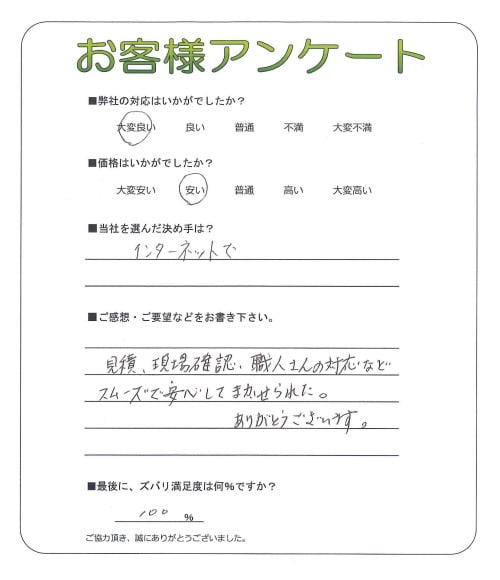 お客様アンケート
■弊社の対応はいかがでしたか？
大変良い 良い 普通 不満 大変不満
■価格はいかがでしたか？
大変安い 安い 普通 高い 大変高い
■当社を選んだ決め手は？
インターネットで
■ご感想・ご要望などをお書き下さい。
見積、現場確認、職人さんの対応など
スムーズで安心してまかせられた。
ありがとうございます。
■最後に、ズバリ満足度は何％ですか？
100 ％
ご協力頂き、誠にありがとうございました。